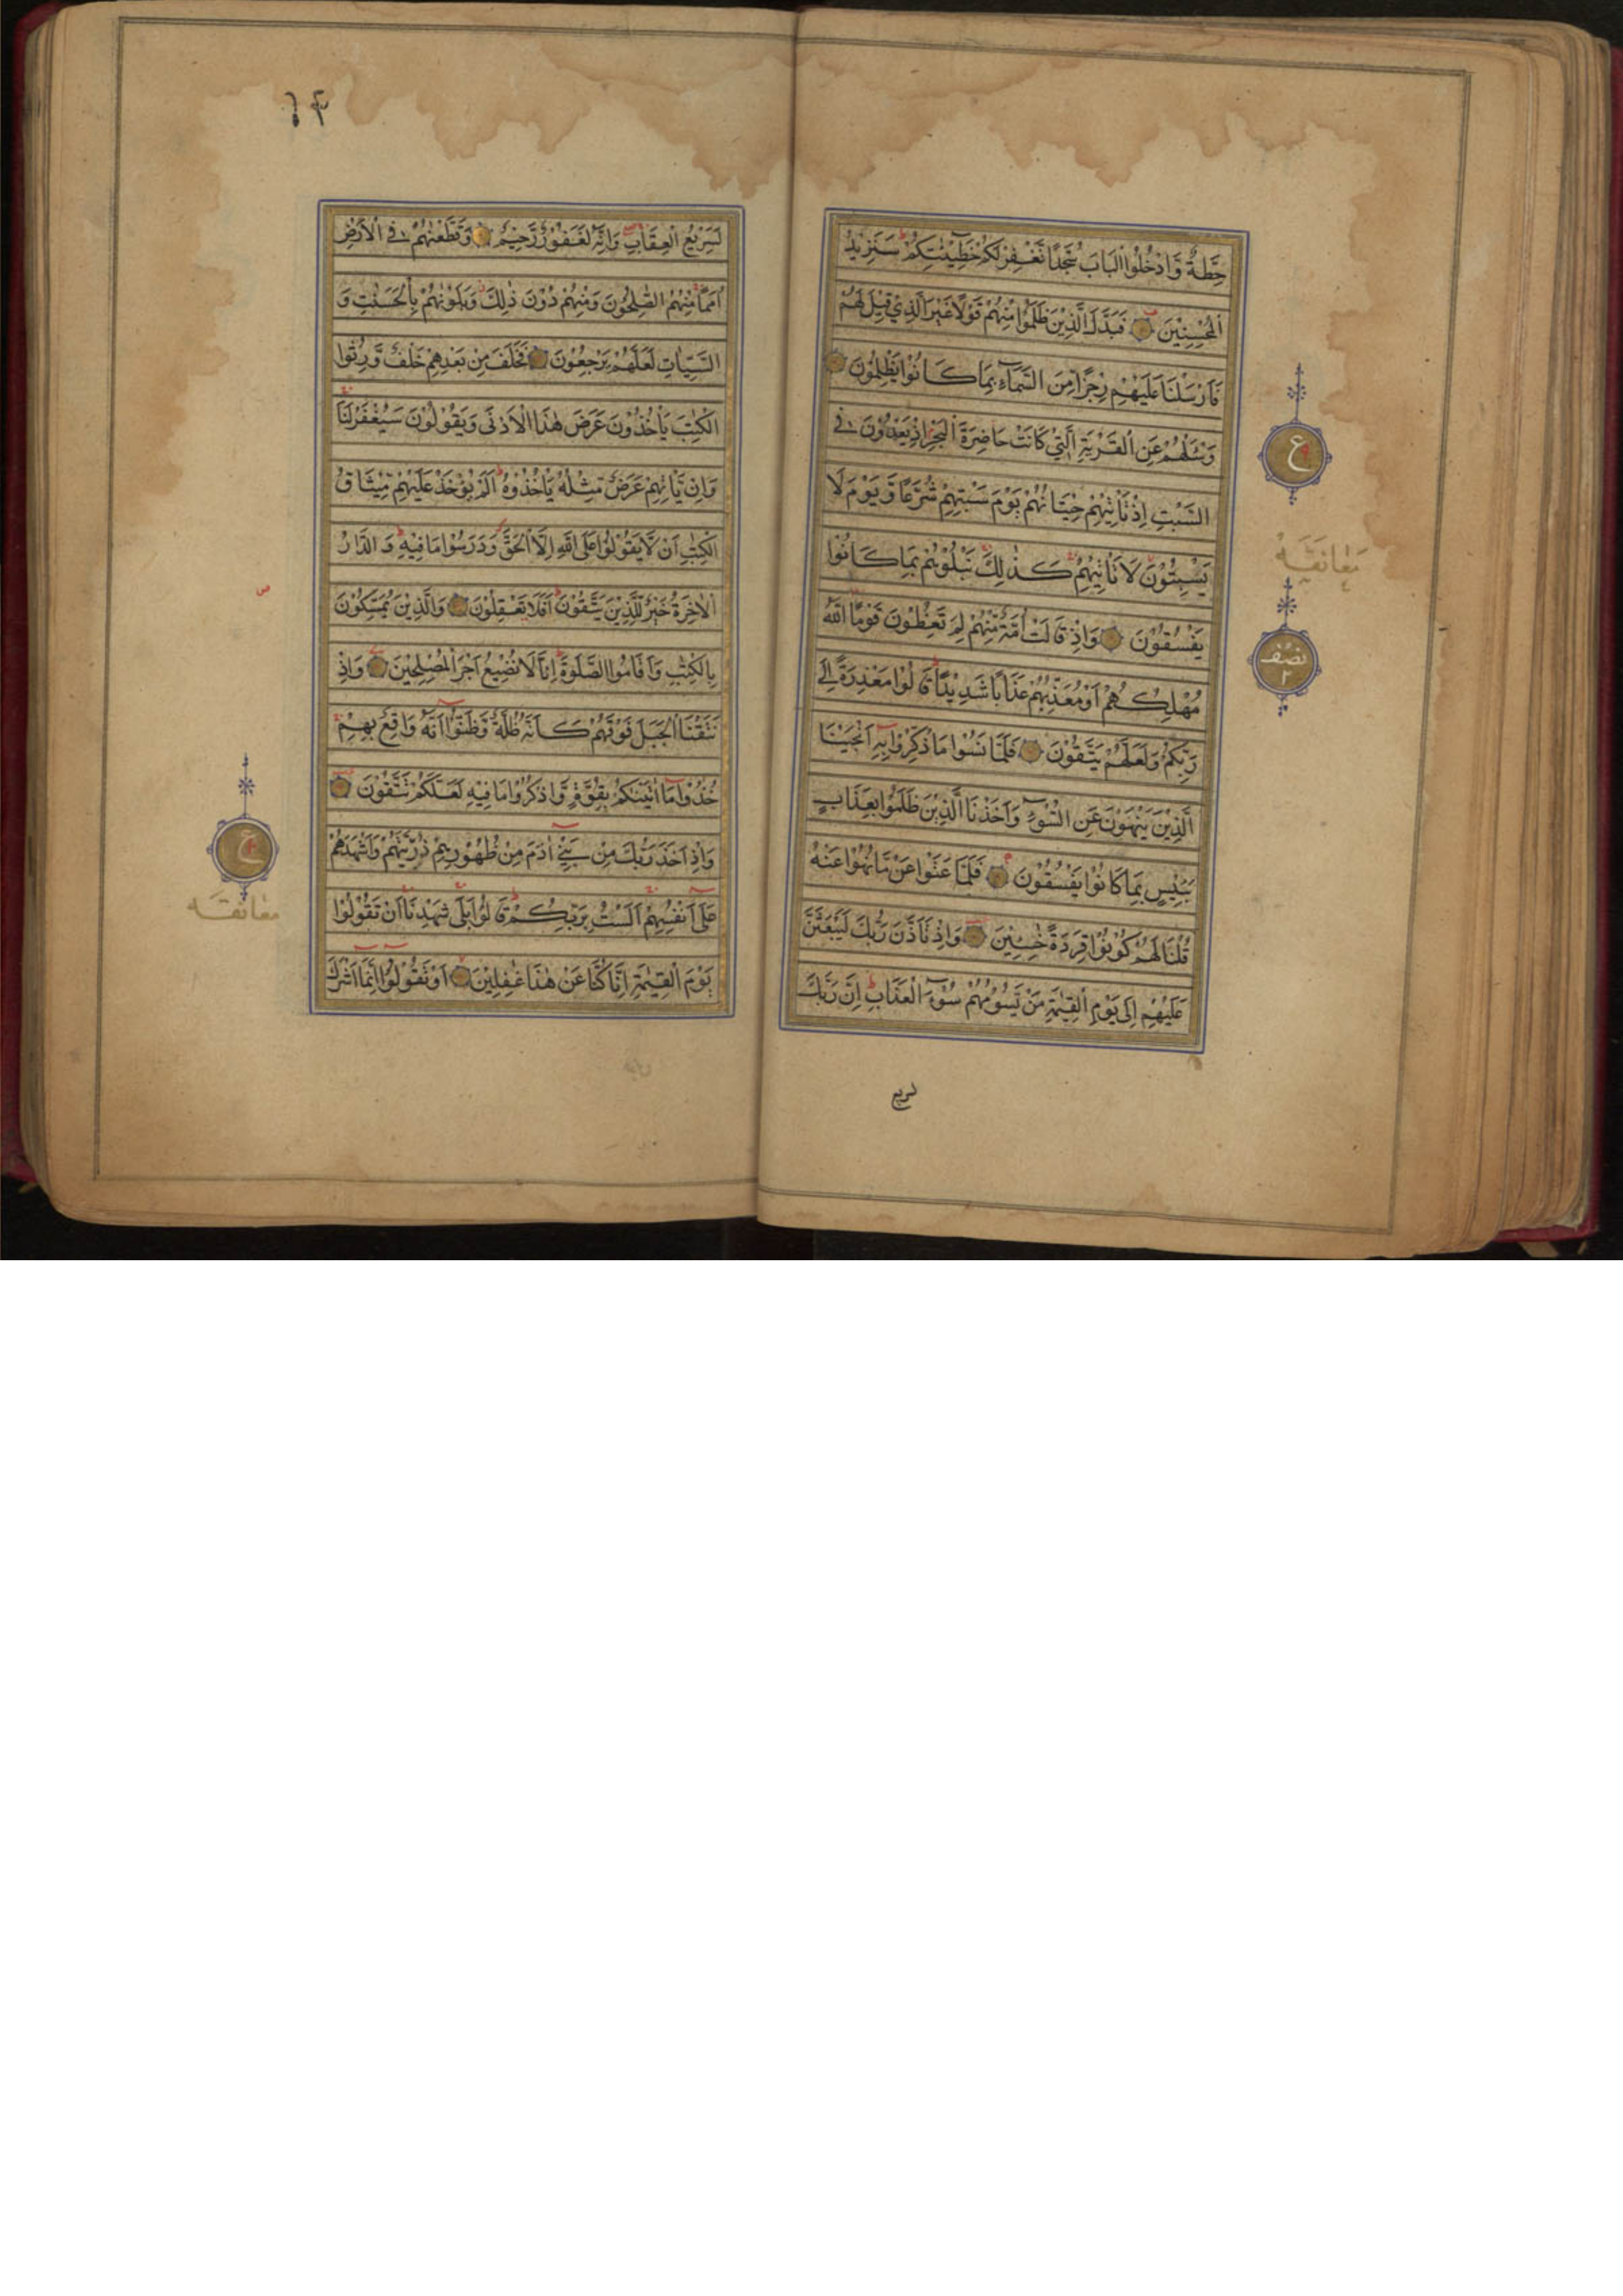 حِطَّةٌ وَّادْخُلُوا الْبَابَ سُجَّدًا نَّغْفِرْ لَكُمْ خَطِيْٓـٰٔتِكُمْ ؕ سَنَزِيْدُ
الْمُحْسِنِيْنَ فَبَدَّلَ الَّذِيْنَ ظَلَمُوْا مِنْهُمْ قَوْلًا غَيْرَ الَّذِيْ قِيْلَ لَهُمْ
فَاَرْسَلْنَا عَلَيْهِمْ رِجْزًا مِّنَ السَّمَآءِ بِمَا كَانُوْا يَظْلِمُوْنَ
وَسْـَٔلْهُمْ عَنِ الْقَرْيَةِ الَّتِيْ كَانَتْ حَاضِرَةَ الْبَحْرِ اِذْ يَعْدُوْنَ فِي
ع
السَّبْتِ اِذْ تَاْتِيْهِمْ حِيْتَانُهُمْ يَوْمَ سَبْتِهِمْ شُرَّعًا وَّيَوْمَ لَا
يَسْبِتُوْنَ لَا تَاْتِيْهِمْ كَذٰلِكَ نَبْلُوْهُمْ بِمَا كَانُوْا
معانقة
يَفْسُقُوْنَ وَاِذْ قَالَتْ اُمَّةٌ مِّنْهُمْ لِمَ تَعِظُوْنَ قَوْمًا اللّٰهُ
نصف
٢
مُهْلِكُهُمْ اَوْ مُعَذِّبُهُمْ عَذَابًا شَدِيْدًا ؕ قَالُوْا مَعْذِرَةً اِلٰى
رَبِّكُمْ وَلَعَلَّهُمْ يَتَّقُوْنَ فَلَمَّا نَسُوْا مَا ذُكِّرُوْا بِهٖٓ اَنْجَيْنَا
الَّذِيْنَ يَنْهَوْنَ عَنِ السُّوْٓءِ وَاَخَذْنَا الَّذِيْنَ ظَلَمُوْا بِعَذَابٍ
بَـِٔيْسٍ بِمَا كَانُوْا يَفْسُقُوْنَ فَلَمَّا عَتَوْا عَنْ مَّا نُهُوْا عَنْهُ
قُلْنَا لَهُمْ كُوْنُوْا قِرَدَةً خٰسِـِٔيْنَ وَاِذْ تَاَذَّنَ رَبُّكَ لَيَبْعَثَنَّ
عَلَيْهِمْ اِلٰى يَوْمِ الْقِيٰمَةِ مَنْ يَّسُوْمُهُمْ سُوْٓءَ الْعَذَابِ ؕ اِنَّ رَبَّكَ
لسريع
لَسَرِيْعُ الْعِقَابِ وَاِنَّهٗ لَغَفُوْرٌ رَّحِيْمٌ وَقَطَّعْنٰهُمْ فِي الْاَرْضِ
اُمَمًا مِنْهُمُ الصّٰلِحُوْنَ وَمِنْهُمْ دُوْنَ ذٰلِكَ وَبَلَوْنٰهُمْ بِالْحَسَنٰتِ وَ
السَّيِّاٰتِ لَعَلَّهُمْ يَرْجِعُوْنَ فَخَلَفَ مِنْ بَعْدِهِمْ خَلْفٌ وَّرِثُوا
الْكِتٰبَ يَاْخُذُوْنَ عَرَضَ هٰذَا الْاَدْنٰى وَيَقُوْلُوْنَ سَيُغْفَرُ لَنَا
وَاِنْ يَّاْتِهِمْ عَرَضٌ مِّثْلُهٗ يَاْخُذُوْهُ ؕ اَلَمْ يُؤْخَذْ عَلَيْهِمْ مِّيْثَاقُ
الْكِتٰبِ اَنْ لَّا يَقُوْلُوْا عَلَى اللّٰهِ اِلَّا الْحَقَّ وَدَرَسُوْا مَا فِيْهِ ؕ وَالدَّارُ
الْاٰخِرَةُ خَيْرٌ لِّلَّذِيْنَ يَتَّقُوْنَ ؕ اَفَلَا تَعْقِلُوْنَ وَالَّذِيْنَ يُمَسِّكُوْنَ
بِالْكِتٰبِ وَاَقَامُوا الصَّلٰوةَ ؕ اِنَّا لَا نُضِيْعُ اَجْرَ الْمُصْلِحِيْنَ وَاِذْ
نَتَقْنَا الْجَبَلَ فَوْقَهُمْ كَاَنَّهٗ ظُلَّةٌ وَّظَنُّوْٓا اَنَّهٗ وَاقِعٌ بِهِمْ
خُذُوْا مَآ اٰتَيْنٰكُمْ بِقُوَّةٍ وَّاذْكُرُوْا مَا فِيْهِ لَعَلَّكُمْ تَتَّقُوْنَ
وَاِذْ اَخَذَ رَبُّكَ مِنْ بَنِيْٓ اٰدَمَ مِنْ ظُهُوْرِهِمْ ذُرِّيَّتَهُمْ وَاَشْهَدَهُمْ
ع
عَلٰٓى اَنْفُسِهِمْ اَلَسْتُ بِرَبِّكُمْ ؕ قَالُوْا بَلٰى شَهِدْنَا اَنْ تَقُوْلُوْا
معانقه
يَوْمَ الْقِيٰمَةِ اِنَّا كُنَّا عَنْ هٰذَا غٰفِلِيْنَ اَوْ تَقُوْلُوْٓا اِنَّمَآ اَشْرَكَ